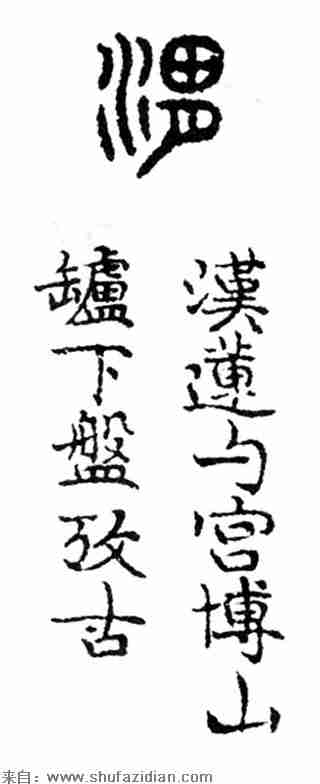 漢蓮勺宮博山
罏下盤攷古
来自：www.shufazidian.com